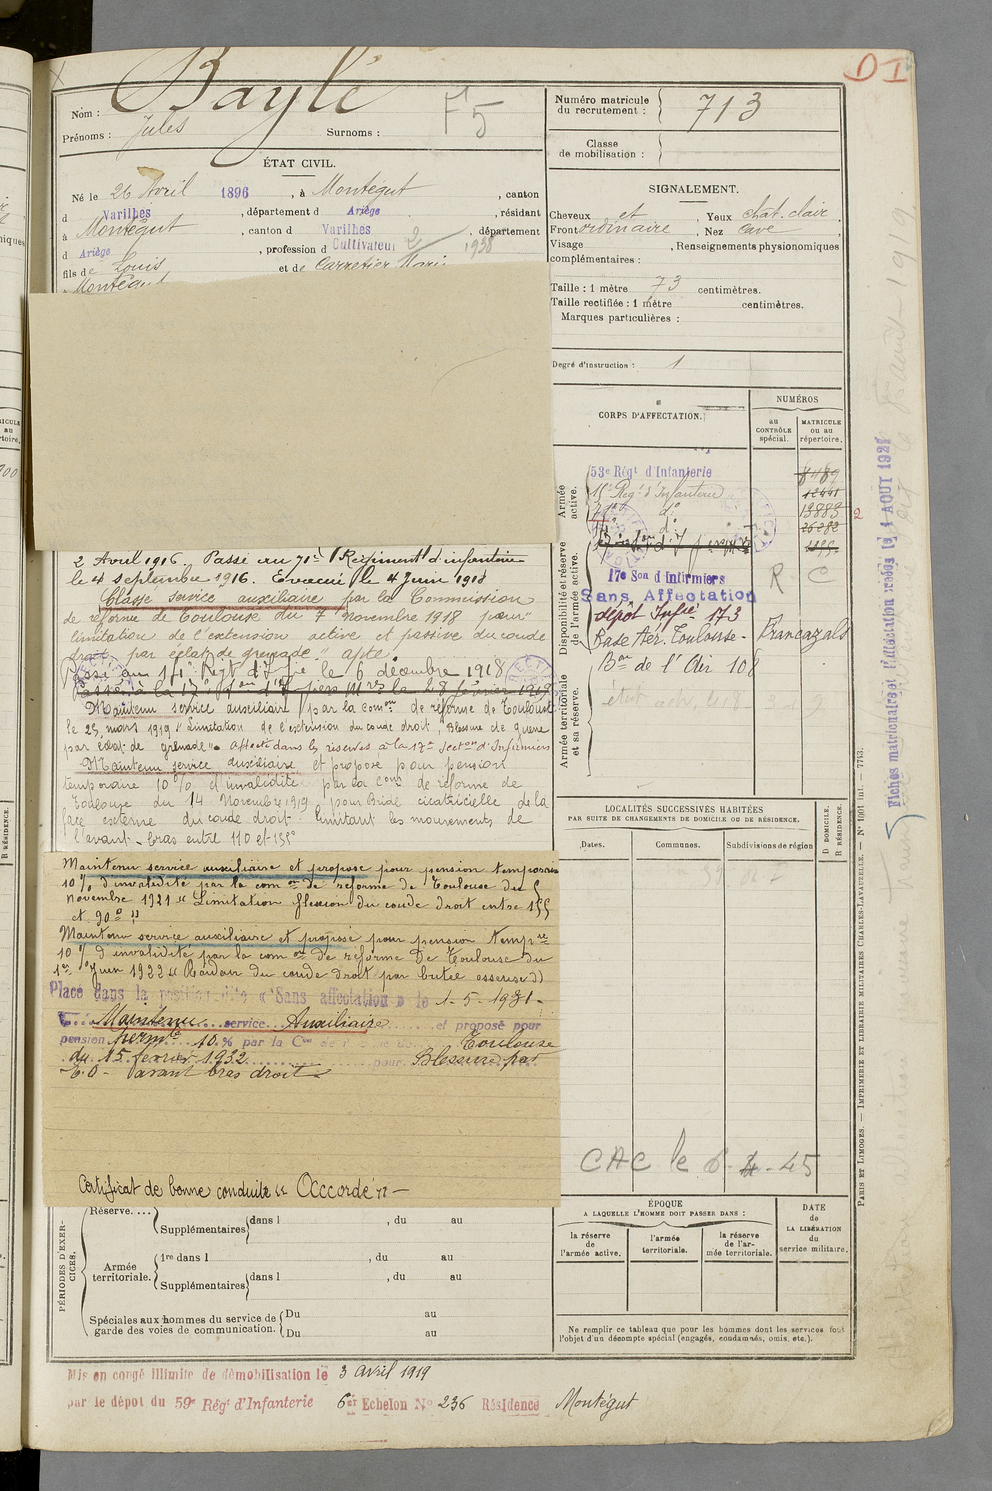 DI
Nom : Baylé
F5
Prénoms : Jules Surnoms :
ÉTAT CIVIL.
Né le 26 Avril 1896, à Montégut, canton
d Varilhes, département d Ariège, résidant
à Montégut, canton d Varilhes, département
d Ariège, profession d Cultivateur 2 1938
fils de Louis et de Carretier Marie
Montégut
Numéro matricule du recrutement : 713
Classe de mobilisation :
SIGNALEMENT.
Cheveux et Yeux chat. clair
Front ordinaire, Nez cave
Visage , Renseignements physionomiques
complémentaires :
Taille : 1 mètre 73 centimètres.
Taille rectifiée : 1 mètre centimètres.
Marques particulières :
Degré d'instruction : 1
CORPS D'AFFECTATION.
NUMÉROS
au CONTRÔLE spécial.
MATRICULE ou au répertoire.
Armée active.
53e Régt d'Infanterie
Régt d'Infanterie
d°
13883
d°
26282
Disponibilité et réserve de l'armée active.
17e Son d'Infirmiers R C
Sans Affectation
dépôt Infie 173
Base Aér. Toulouse - Francazals
Bon de l'Air 108
Armée territoriale et sa réserve.
2 Avril 1916. Passé au 71e Régiment d'infanterie
le 4 septembre 1916. Evacué le 4 Juin 1918
Classé service auxiliaire par la Commission
de réforme de Toulouse du 7 novembre 1918 pour "
limitation de l'extension active et passive du coude
droit par éclat de grenade." apte
Passé au 14e Régt d'Infie le 6 décembre 1918
Passé à la 17e Son d'Infirmiers Mres le 28 février 1919
Maintenu service auxiliaire par la Comon de réforme de Toulouse
le 25 mars 1919 "Limitation de l'extension du coude droit, Blessure de guerre
par éclat de grenade". Affecté dans les réserves à la 17e Section d'Infirmiers
Maintenu service auxiliaire et proposé pour pension
temporaire 10% d'invalidité par la Comon de réforme de
Toulouse du 14 Novembre 1919 pour Bride cicatricielle de la
face externe du coude droit limitant les mouvements de
l'avant-bras entre 110 et 155°
Maintenu service auxiliaire et proposé pour pension temporaire
10% d'invalidité par la comon de réforme de Toulouse du 5
Novembre 1921 "Limitation flexion du coude droit entre 155
et 90° "
Maintenu service auxiliaire et proposé pour pension tempre
10% d'invalidité par la comon de réforme De Toulouse du
1er Juin 1922 "Raideur du coude droit par butée osseuse")
Placé dans la position dite « Sans affectation » le 1-5-1931.
Maintenu service Auxiliaire et proposé pour
pension permte 10 % par la Con Toulouse
du 15 février 1932 pour Blessure par
E.O - avant bras droit
Certificat de bonne conduite "Accordé"
LOCALITÉS SUCCESSIVES HABITÉES
PAR SUITE DE CHANGEMENTS DE DOMICILE OU DE RÉSIDENCE.
Dates.
Communes.
Subdivisions de région
D DOMICILE.
R RÉSIDENCE.
CAC le 6-4-45
ÉPOQUE
A LAQUELLE L'HOMME DOIT PASSER DANS :
la réserve de l'armée active.
l'armée territoriale.
la réserve de l'armée territoriale.
DATE de LA LIBÉRATION du service militaire.
Ne remplir ce tableau que pour les hommes dont les services font
l'objet d'un décompte spécial (engagés, condamnés, omis, etc.).
PÉRIODES D'EXERCICES.
Réserve....
Supplémentaires dans l , du au
Armée territoriale.
1re dans l , du au
Supplémentaires dans l , du au
Spéciales aux hommes du service de garde des voies de communication.
Du au
Du au
Mis en congé illimité de démobilisation le 3 avril 1919
par le dépôt du 59e Régt d'Infanterie 6e Echelon No 236 Résidence Montégut
PARIS ET LIMOGES. — IMPRIMERIE ET LIBRAIRIE MILITAIRES CHARLES-LAVAUZELLE. — No 1001 int. — 7713.